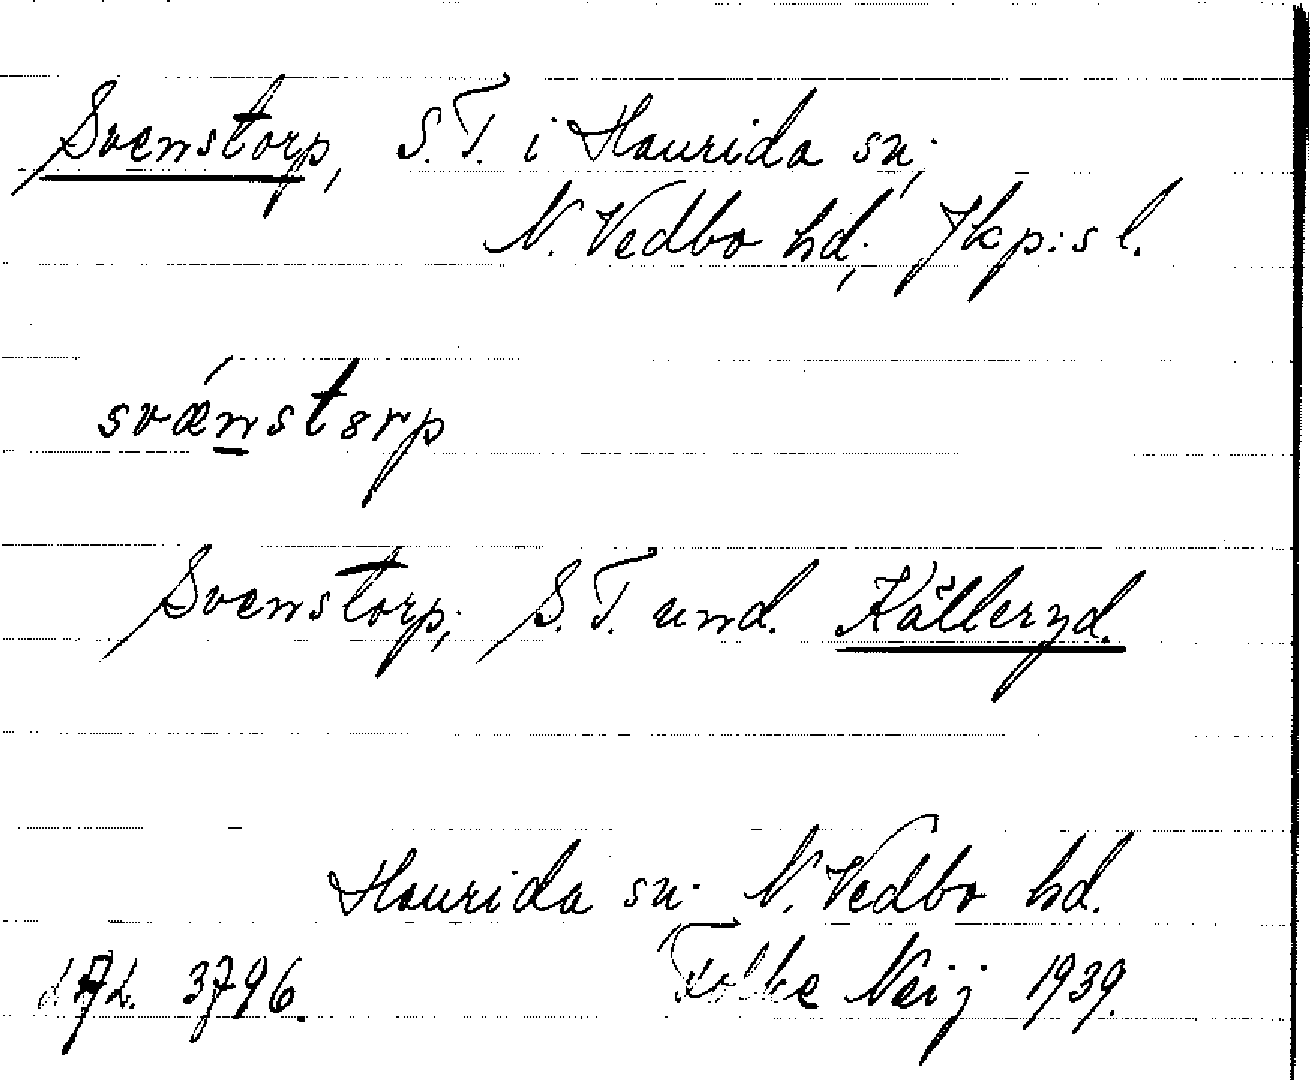 Svenstorp, S.T. i Haurida sn;
N. Vedbo hd; Jkp:s l.
svǽnstɜrp
Svenstorp; S.T. und. Källeryd.
Haurida sn. N. Vedbo hd.
3796. Folke Neij 1939.